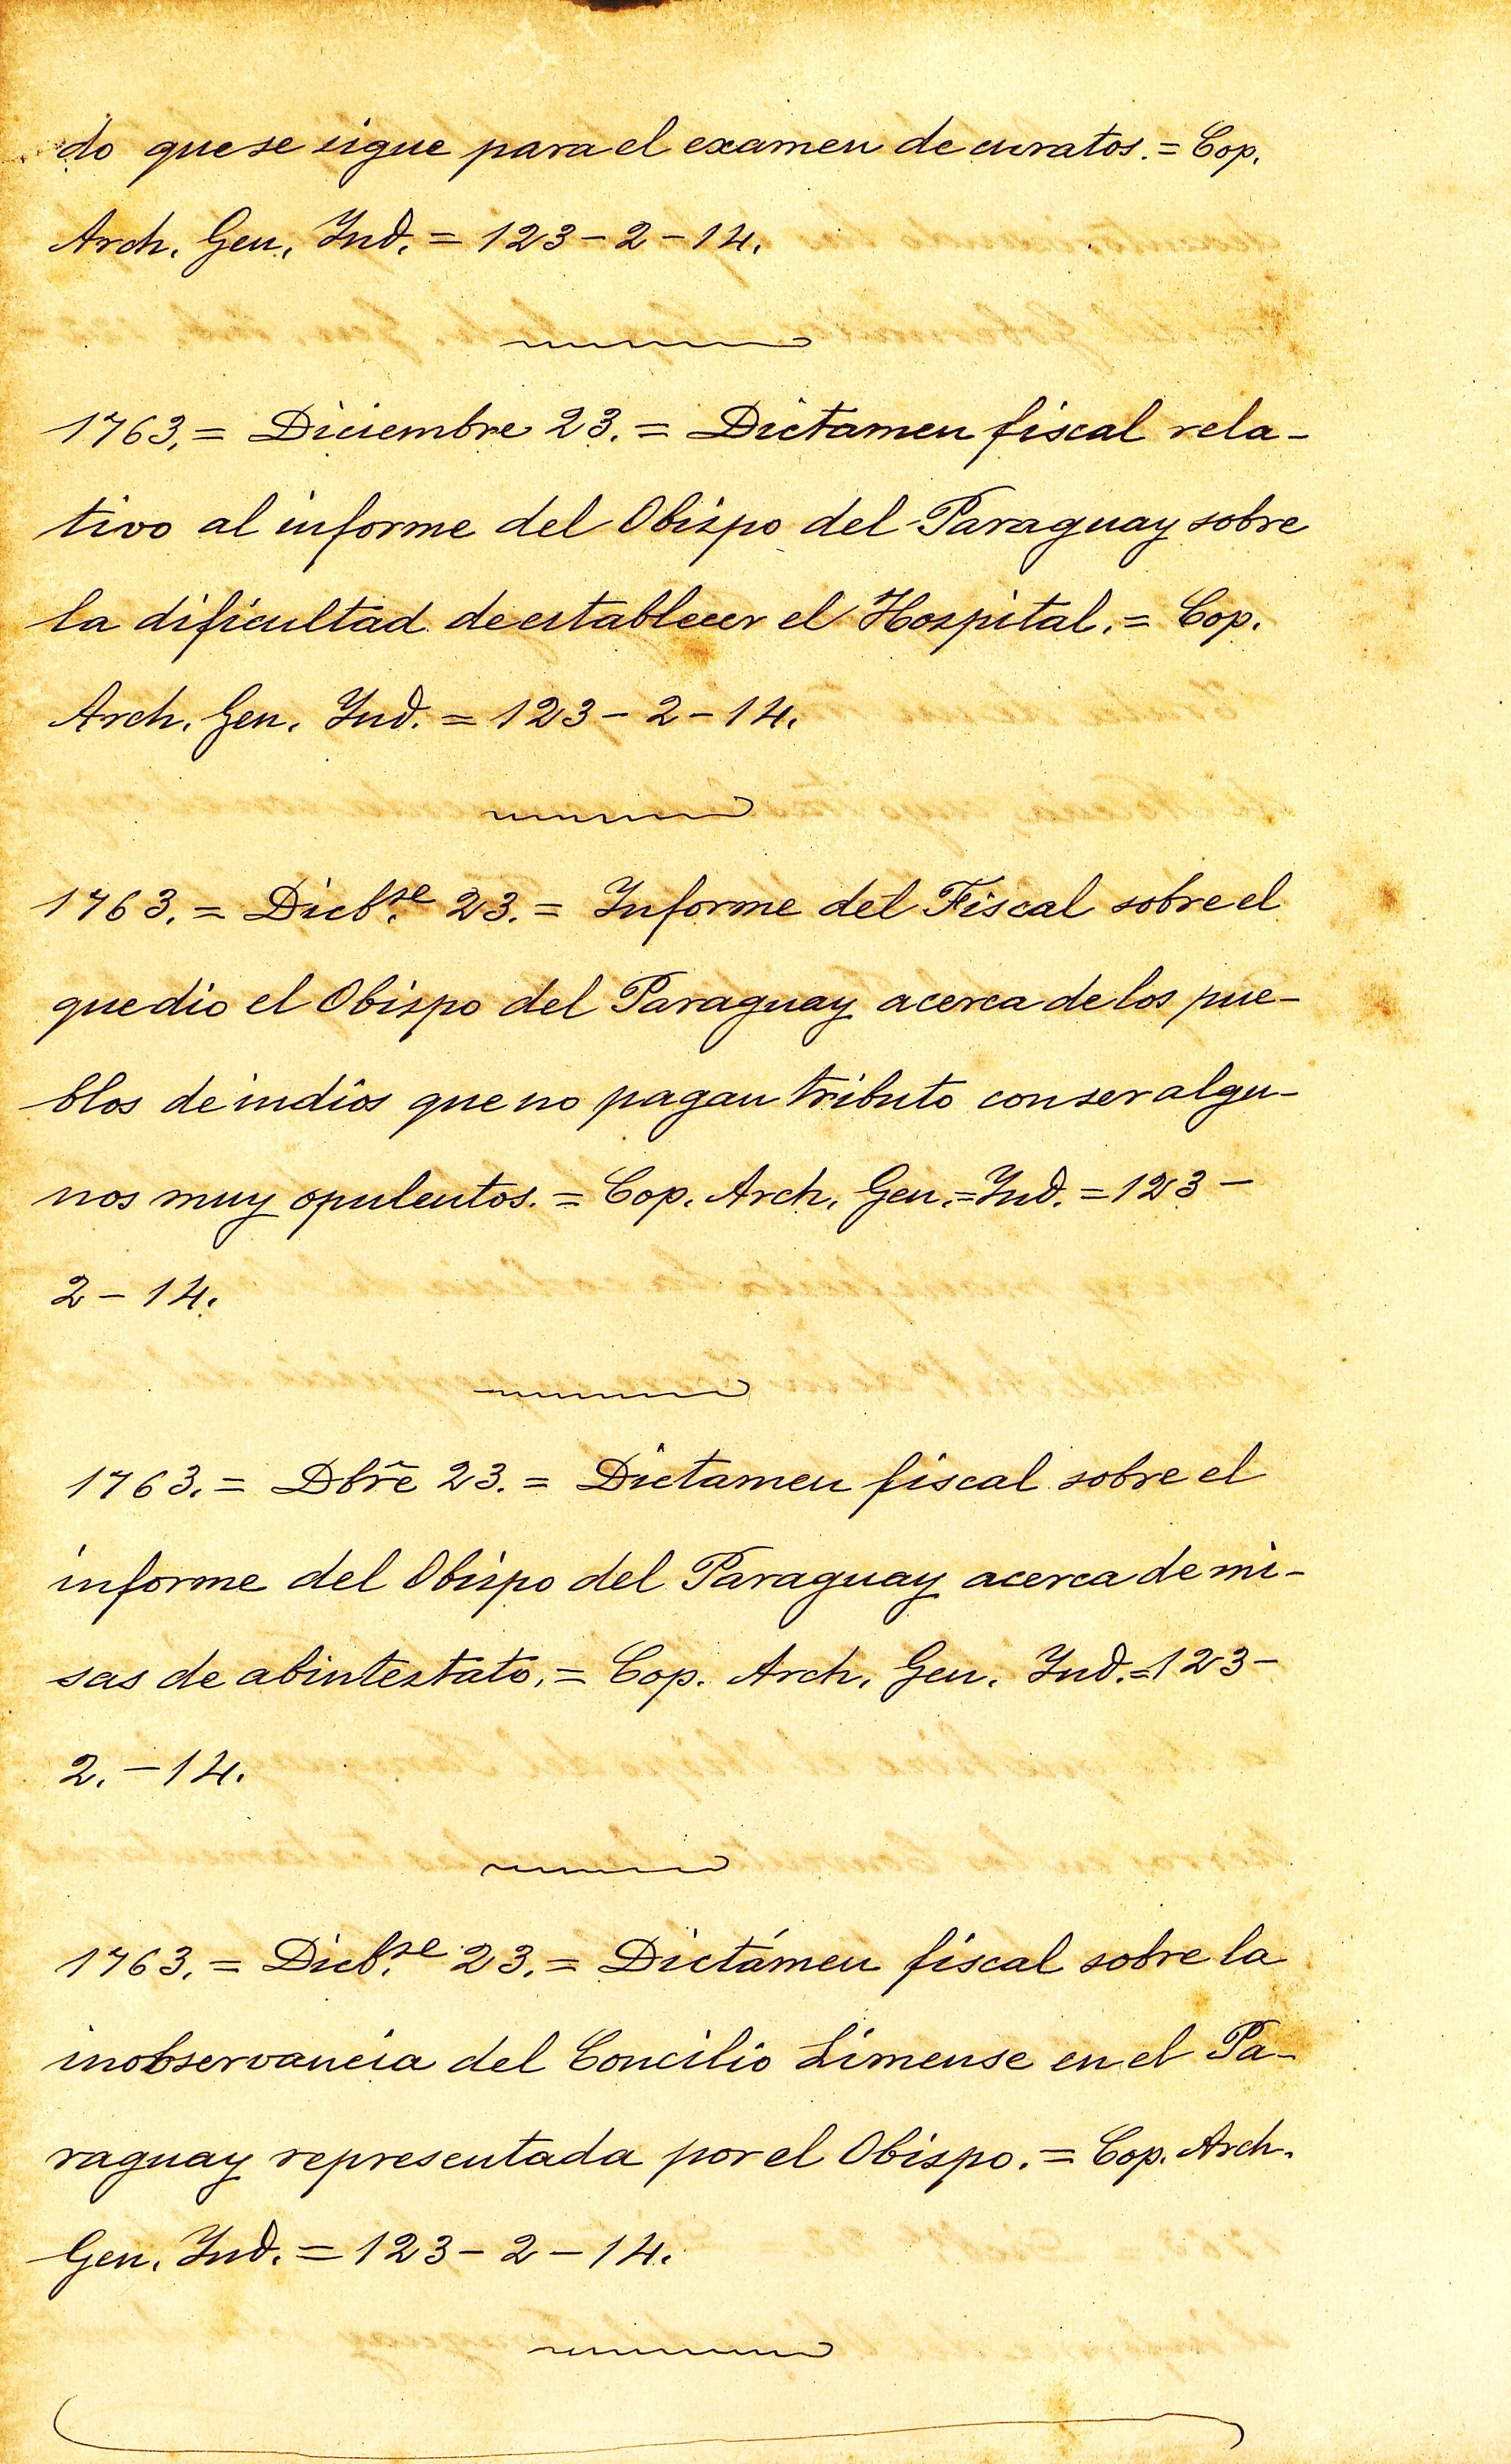 do que se sigue para el examen de curatos. = Cop.
Arch. Gen. Ind. = 123 - 2 - 14.
1763. = Diciembre 23. = Dictamen fiscal rela-
tivo al informe del Obispo del Paraguay sobre
la dificultad de establecer el Hospital. = Cop.
Arch. Gen. Ind. = 123 - 2 - 14.
1763. = Dicb.re 23. = Informe del Fiscal sobre el
que dio el Obispo del Paraguay acerca de los pue-
blos de indios que no pagan tributo con ser algu-
nos muy opulentos. = Cop. Arch. Gen. = Ind. = 123 -
2 - 14.
1763. = Dbr̃e 23. = Dictamen fiscal sobre el
informe del Obispo del Paraguay acerca de mi-
sas de abintestato. = Cop. Arch. Gen. Ind. = 123 -
2. - 14.
1763. = Dicb.re 23. = Dictámen fiscal sobre la
inobservancia del Concilio Limense en el Pa-
raguay representada por el Obispo. = Cop. Arch.
Gen. Ind. = 123 - 2 - 14.